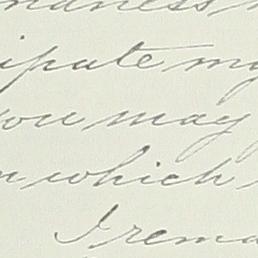 ndness
ipate my
you may
n which
I rema